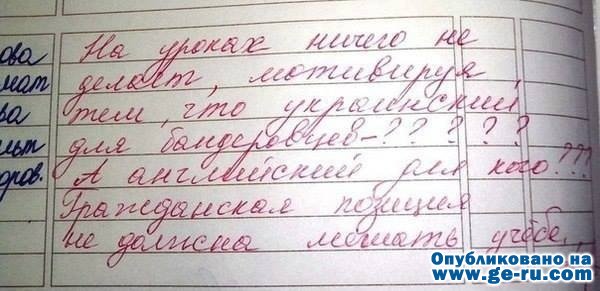 На уроках ничего не
делает, мотивируя
тем, что украинский
для бандеровцев-?????
А английский для кого???
Гражданская позиция
не должна мешать учёбе.
ова
мат
ва
льт
доров.
Опубликовано на
www.ge-ru.com